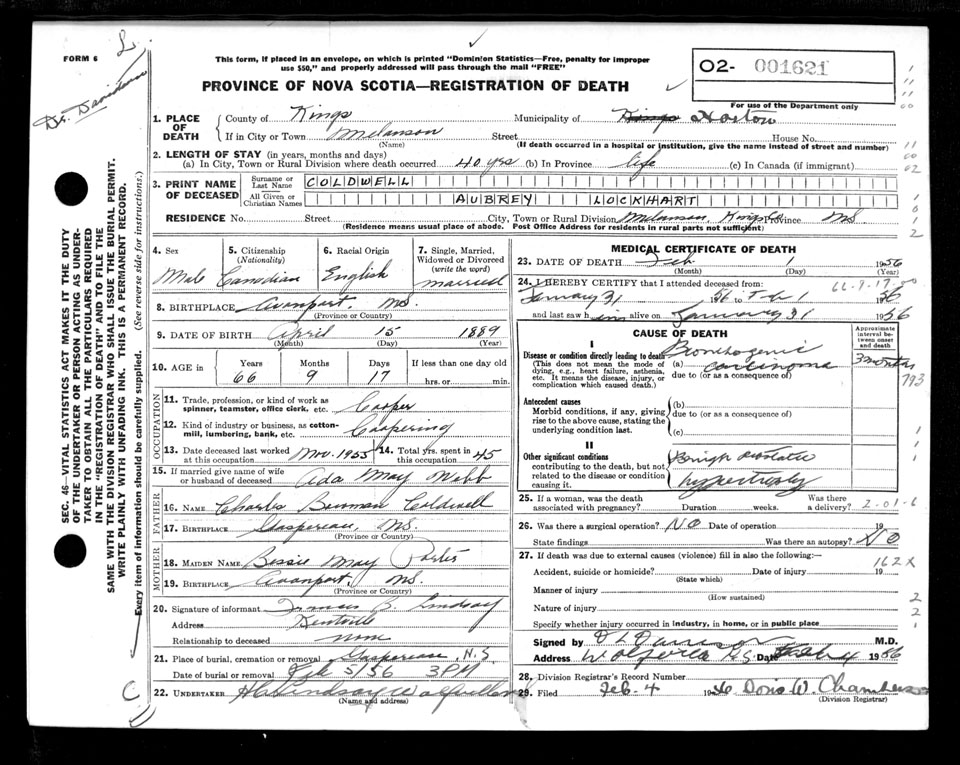 FORM 6
Dr. Davidson
This form, if placed in an envelope, on which is printed "Dominion Statistics—Free, penalty for improper
use $50," and properly addressed will pass through the mail "FREE"
PROVINCE OF NOVA SCOTIA—REGISTRATION OF DEATH
O2- 001621
For use of the Department only
1. PLACE OF DEATH
County of Kings Municipality of Kings Horton
If in City or Town Melanson Street House No.
(Name) (If death occurred in a hospital or institution, give the name instead of street and number)
2. LENGTH OF STAY (in years, months and days)
(a) In City, Town or Rural Division where death occurred 40 yrs (b) In Province life (c) In Canada (if immigrant)
3. PRINT NAME OF DECEASED
Surname or Last Name COLDWELL
All Given or Christian Names AUBREY LOCKHART
RESIDENCE No. Street City, Town or Rural Division Melanson, Kings Co Province NS
(Residence means usual place of abode. Post Office Address for residents in rural parts not sufficient)
4. Sex Male
5. Citizenship (Nationality) Canadian
6. Racial Origin English
7. Single, Married, Widowed or Divorced (write the word) married
8. BIRTHPLACE Avonport, NS.
(Province or Country)
9. DATE OF BIRTH April 15 1889
(Month) (Day) (Year)
10. AGE in Years 66 Months 9 Days 17 If less than one day old hrs. or min.
OCCUPATION
11. Trade, profession, or kind of work as spinner, teamster, office clerk, etc. Cooper
12. Kind of industry or business, as cotton-mill, lumbering, bank, etc. Coopering
13. Date deceased last worked at this occupation Nov. 1955 14. Total yrs. spent in this occupation 45
15. If married give name of wife or husband of deceased Ada May Webb
FATHER
16. NAME Charles Coldwell
17. BIRTHPLACE Gaspereau, NS.
(Province or Country)
MOTHER
18. MAIDEN NAME Bessie May Porter
19. BIRTHPLACE Avonport, NS.
(Province or Country)
20. Signature of informant B. Lindsay
Address Kentville
Relationship to deceased none
21. Place of burial, cremation or removal Gaspereau, N.S.
Date of burial or removal Feb 5/56 3PM
22. UNDERTAKER H C Lindsay Wolfville
(Name and address)
MEDICAL CERTIFICATE OF DEATH
23. DATE OF DEATH Feb 1 1956
(Month) (Day) (Year)
66-9-17-00
24. I HEREBY CERTIFY that I attended deceased from:
January 31 56 to Feb 1 1956
and last saw him alive on January 31 1956
CAUSE OF DEATH
Approximate interval between onset and death
I
Disease or condition directly leading to death
(This does not mean the mode of dying, e.g., heart failure, asthenia, etc. It means the disease, injury, or complication which caused death.)
(a) Bronchogenic carcinoma 3 months
due to (or as a consequence of)
793
Antecedent causes
Morbid conditions, if any, giving rise to the above cause, stating the underlying condition last.
(b)
due to (or as a consequence of)
(c)
II
Other significant conditions contributing to the death, but not related to the disease or condition causing it.
Benign prostatic hypertrophy
25. If a woman, was the death associated with pregnancy? Duration weeks. Was there a delivery?
2-01-6
26. Was there surgical operation? NO Date of operation 19
State findings Was there an autopsy? NO
27. If death was due to external causes (violence) fill in also the following:—
162X
Accident, suicide or homicide? Date of injury 19
(State which)
Manner of injury
(How sustained)
Nature of injury
Specify whether injury occurred in industry, in home, or in public place
Signed by M.D.
Address Wolfville NS. Date Feb 4 1956
28. Division Registrar's Record Number
29. Filed Feb. 4 1956 Doris W. Chambers
(Division Registrar)
SEC. 46—VITAL STATISTICS ACT MAKES IT THE DUTY
OF THE UNDERTAKER OR PERSON ACTING AS UNDER-
TAKER TO OBTAIN ALL THE PARTICULARS REQUIRED
IN THE "REGISTRATION OF DEATH" AND TO FILE THE
SAME WITH THE DIVISION REGISTRAR WHO SHALL ISSUE THE BURIAL PERMIT.
WRITE PLAINLY WITH UNFADING INK. THIS IS A PERMANENT RECORD.
Every item of information should be carefully supplied. (See reverse side for instructions:)
C